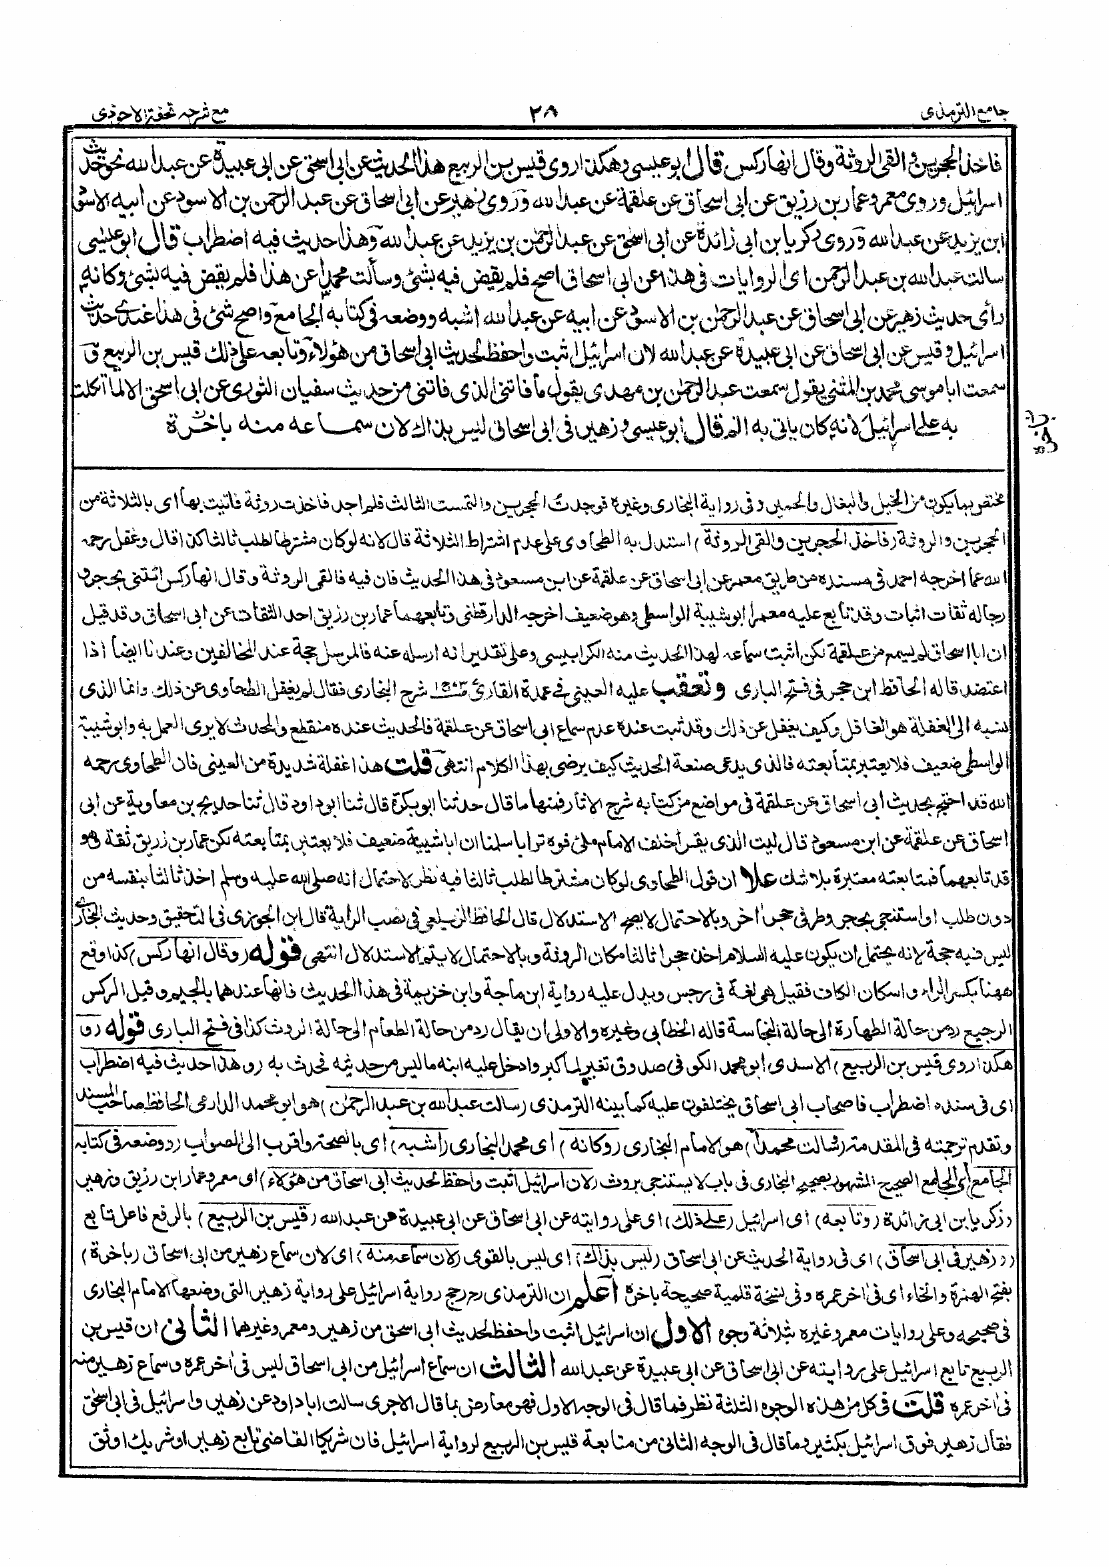 جامع الترمذى
٢٨
مع شرحہ تحفۃ الاحوذى
فاخذ الحجرين والقى الروثة وقال انها ركس قال ابو عيسى وهكذا روى قيس بن الربيع هذا الحديث عن ابى اسحق عن ابى عبيدة عن عبد الله نحو حديث
اسرائيل وروى معمر وعمار بن رزيق عن ابى اسحاق عن علقمة عن عبد الله وروى زهير عن ابى اسحاق عن عبد الرحمن بن الاسود عن ابيه الاسود
ابن يزيد عن عبد الله وروى زكريا بن ابى زائدة عن ابى اسحق عن عبد الرحمن بن يزيد عن عبد الله وهذا حديث فيه اضطراب قال ابو عيسى
سالت عبد الله بن عبد الرحمن اى الروايات فى هذا عن ابى اسحاق اصح فلم يقض فيه بشئ وسألت محمدا عن هذا فلم يقض فيه بشئ وكانه
رأى حديث زهير عن ابى اسحاق عن عبد الرحمن بن الاسود عن ابيه عن عبد الله اشبه ووضعه فى كتابه الجامع واصح شئ فى هذا عندى حديث
اسرائيل وقيس عن ابى اسحاق عن ابى عبيدة عن عبد الله لان اسرائيل اثبت واحفظ لحديث ابى اسحاق من هؤلاء وتابعه على ذلك قيس بن الربيع و
سمعت ابا موسى محمد بن المثنى يقول سمعت عبد الرحمن بن مهدى يقول ما فاتنى الذى فاتنى من حديث سفيان الثورى عن ابى اسحق الا لما اتكلت
به على اسرائيل لانه كان ياتى به اتم قال ابو عيسى وزهير فى ابى اسحاق ليس بذاك لان سماعه منه باخرة
مختص بما يكون من الخيل والبغال والحمير وفى رواية البخارى وغيره فوجدت الحجرين والتمست الثالث فلم اجد فاخذت روثة فاتيت بها اى بالثلاثة من
الحجرين والروثة (فاخذ الحجرين والقى الروثة) استدل به الطحاوى على عدم اشتراط الثلاثة قال لانه لو كان مشترطا لطلب ثالثا كذا قال وغفل رحمه
الله عما اخرجه احمد فى مسنده من طريق معمر عن ابى اسحاق عن علقمة عن ابن مسعود فى هذا الحديث فان فيه فالقى الروثة وقال انها ركس ائتنى بحجر و
رجاله ثقات اثبات وقد تابع عليه معمرا ابو شيبة الواسطى وهو ضعيف اخرجه الدارقطنى وتابعهما عمار بن رزيق احد الثقات عن ابى اسحاق وقد قيل
ان ابا اسحاق لم يسمع من علقمة لكن اثبت سماعه لهذا الحديث منه الكرابيسى وعلى تقدير انه ارسله عنه فالمرسل حجة عند المخالفين وعندنا ايضا اذا
اعتضد قاله الحافظ ابن حجر فى فتح البارى وتعقب عليه العينى فى عمدة القارى شرح البخارى فقال لم يغفل الطحاوى عن ذلك وانما الذى
نسبه الى الغفلة هو الغافل وكيف يغفل عن ذلك وقد ثبت عنده عدم سماع ابى اسحاق عن علقمة فالحديث عنده منقطع والمحدث لا يرى العمل به وابو شيبة
الواسطى ضعيف فلا يعتبر بمتابعته فالذى يدعى صنعة الحديث كيف يرضى بهذا الكلام انتهى قلت هذا غفلة شديدة من العينى فان الطحاوى رحمه
الله قد احتج بحديث ابى اسحاق عن علقمة فى مواضع من كتابه شرح الآثار فمنها ما قال حدثنا ابو بكرة قال ثنا ابو داود قال ثنا حديج بن معاوية عن ابى
اسحاق عن علقمة عن ابن مسعود قال ليت الذى يقرأ خلف الامام ملئ فوه ترابا سلمنا ان ابا شيبة ضعيف فلا يعتبر بمتابعته لكن عمار بن رزيق ثقة وهو
قد تابعهما فمتابعته معتبرة بلا شك علا ان قول الطحاوى لو كان مشترطا لطلب ثالثا فيه نظر لاحتمال انه صلى الله عليه وسلم اخذ ثالثا بنفسه من
دون طلب او استنجى بحجر وطرفى حجر آخر وبالاحتمال لا يصح الاستدلال قال الحافظ الزيلعى فى نصب الراية قال ابن الجوزى فى التحقيق وحديث البخارى
ليس فيه حجة لانه يحتمل ان يكون عليه السلام اخذ حجرا ثالثا مكان الروثة وبالاحتمال لا يتم الاستدلال انتهى قوله (وقال انها ركس) كذا وقع
ههنا بكسر الراء واسكان الكاف فقيل هى لغة فى رجس ويدل عليه رواية ابن ماجة وابن خزيمة فى هذا الحديث فانها عندهما بالجيم وقيل الركس
الرجيع رد من حالة الطهارة الى حالة النجاسة قاله الخطابى وغيره والاولى ان يقال رد من حالة الطعام الى حالة الروث كذا فى فتح البارى قوله (و
هكذا روى قيس بن الربيع) الاسدى ابو محمد الكوفى صدوق تغير لما كبر وادخل عليه ابنه ما ليس من حديثه فحدث به (وهذا حديث فيه اضطراب
اى فى سنده اضطراب فاصحاب ابى اسحاق يختلفون عليه كما بينه الترمذى (سالت عبد الله بن عبد الرحمن) هو ابو محمد الدارمى الحافظ صاحب المسند
وتقدم ترجمته فى المقدمة (سالت محمدا) هو الامام البخارى (وكانه) اى محمد البخارى (اشبه) اى بالصحة واقرب الى الصواب (ووضعه فى كتابه
الجامع) اى الجامع الصحيح المشهور بصحيح البخارى فى باب لا يستنجى بروث (لان اسرائيل اثبت واحفظ لحديث ابى اسحاق من هؤلاء) اى معمر وعمار ابن رزيق وزهير
(زكريا بن ابى زائدة (وتابعه) اى اسرائيل (على ذلك) اى على روايته عن ابى اسحاق عن ابى عبيدة عن عبد الله (قيس بن الربيع) بالرفع فاعل تابع
(وزهير فى ابى اسحاق) اى فى رواية الحديث عن ابى اسحاق (ليس بذاك) اى ليس بالقوى (لان سماعه منه) اى لان سماع زهير من ابى اسحاق (باخرة)
بفتح الهمزة والخاء اى فى آخر عمره وفى نسخة قلمية صحيحة باخره اعلم ان الترمذى رح رجح رواية اسرائيل على رواية زهير التى وضعها الامام البخارى
فى صحيحه وعلى روايات معمر وغيره بثلاثة وجوه الاول ان اسرائيل اثبت واحفظ لحديث ابى اسحق من زهير ومعمر وغيرهما الثانى ان قيس بن
الربيع تابع اسرائيل على روايته عن ابى اسحاق عن ابى عبيدة عن عبد الله الثالث ان سماع اسرائيل من ابى اسحاق ليس فى آخر عمره وسماع زهير منه
فى آخر عمره قلت فى كل من هذه الوجوه الثلثة نظر فما قال فى الوجه الاول فهو معارض بما قال الآجرى سالت ابا داود عن زهير واسرائيل فى ابى اسحق
فقال زهير فوق اسرائيل بكثير وما قال فى الوجه الثانى من متابعة قيس بن الربيع لرواية اسرائيل فان شريكا القاضى تابع زهيرا وشريك اوثق